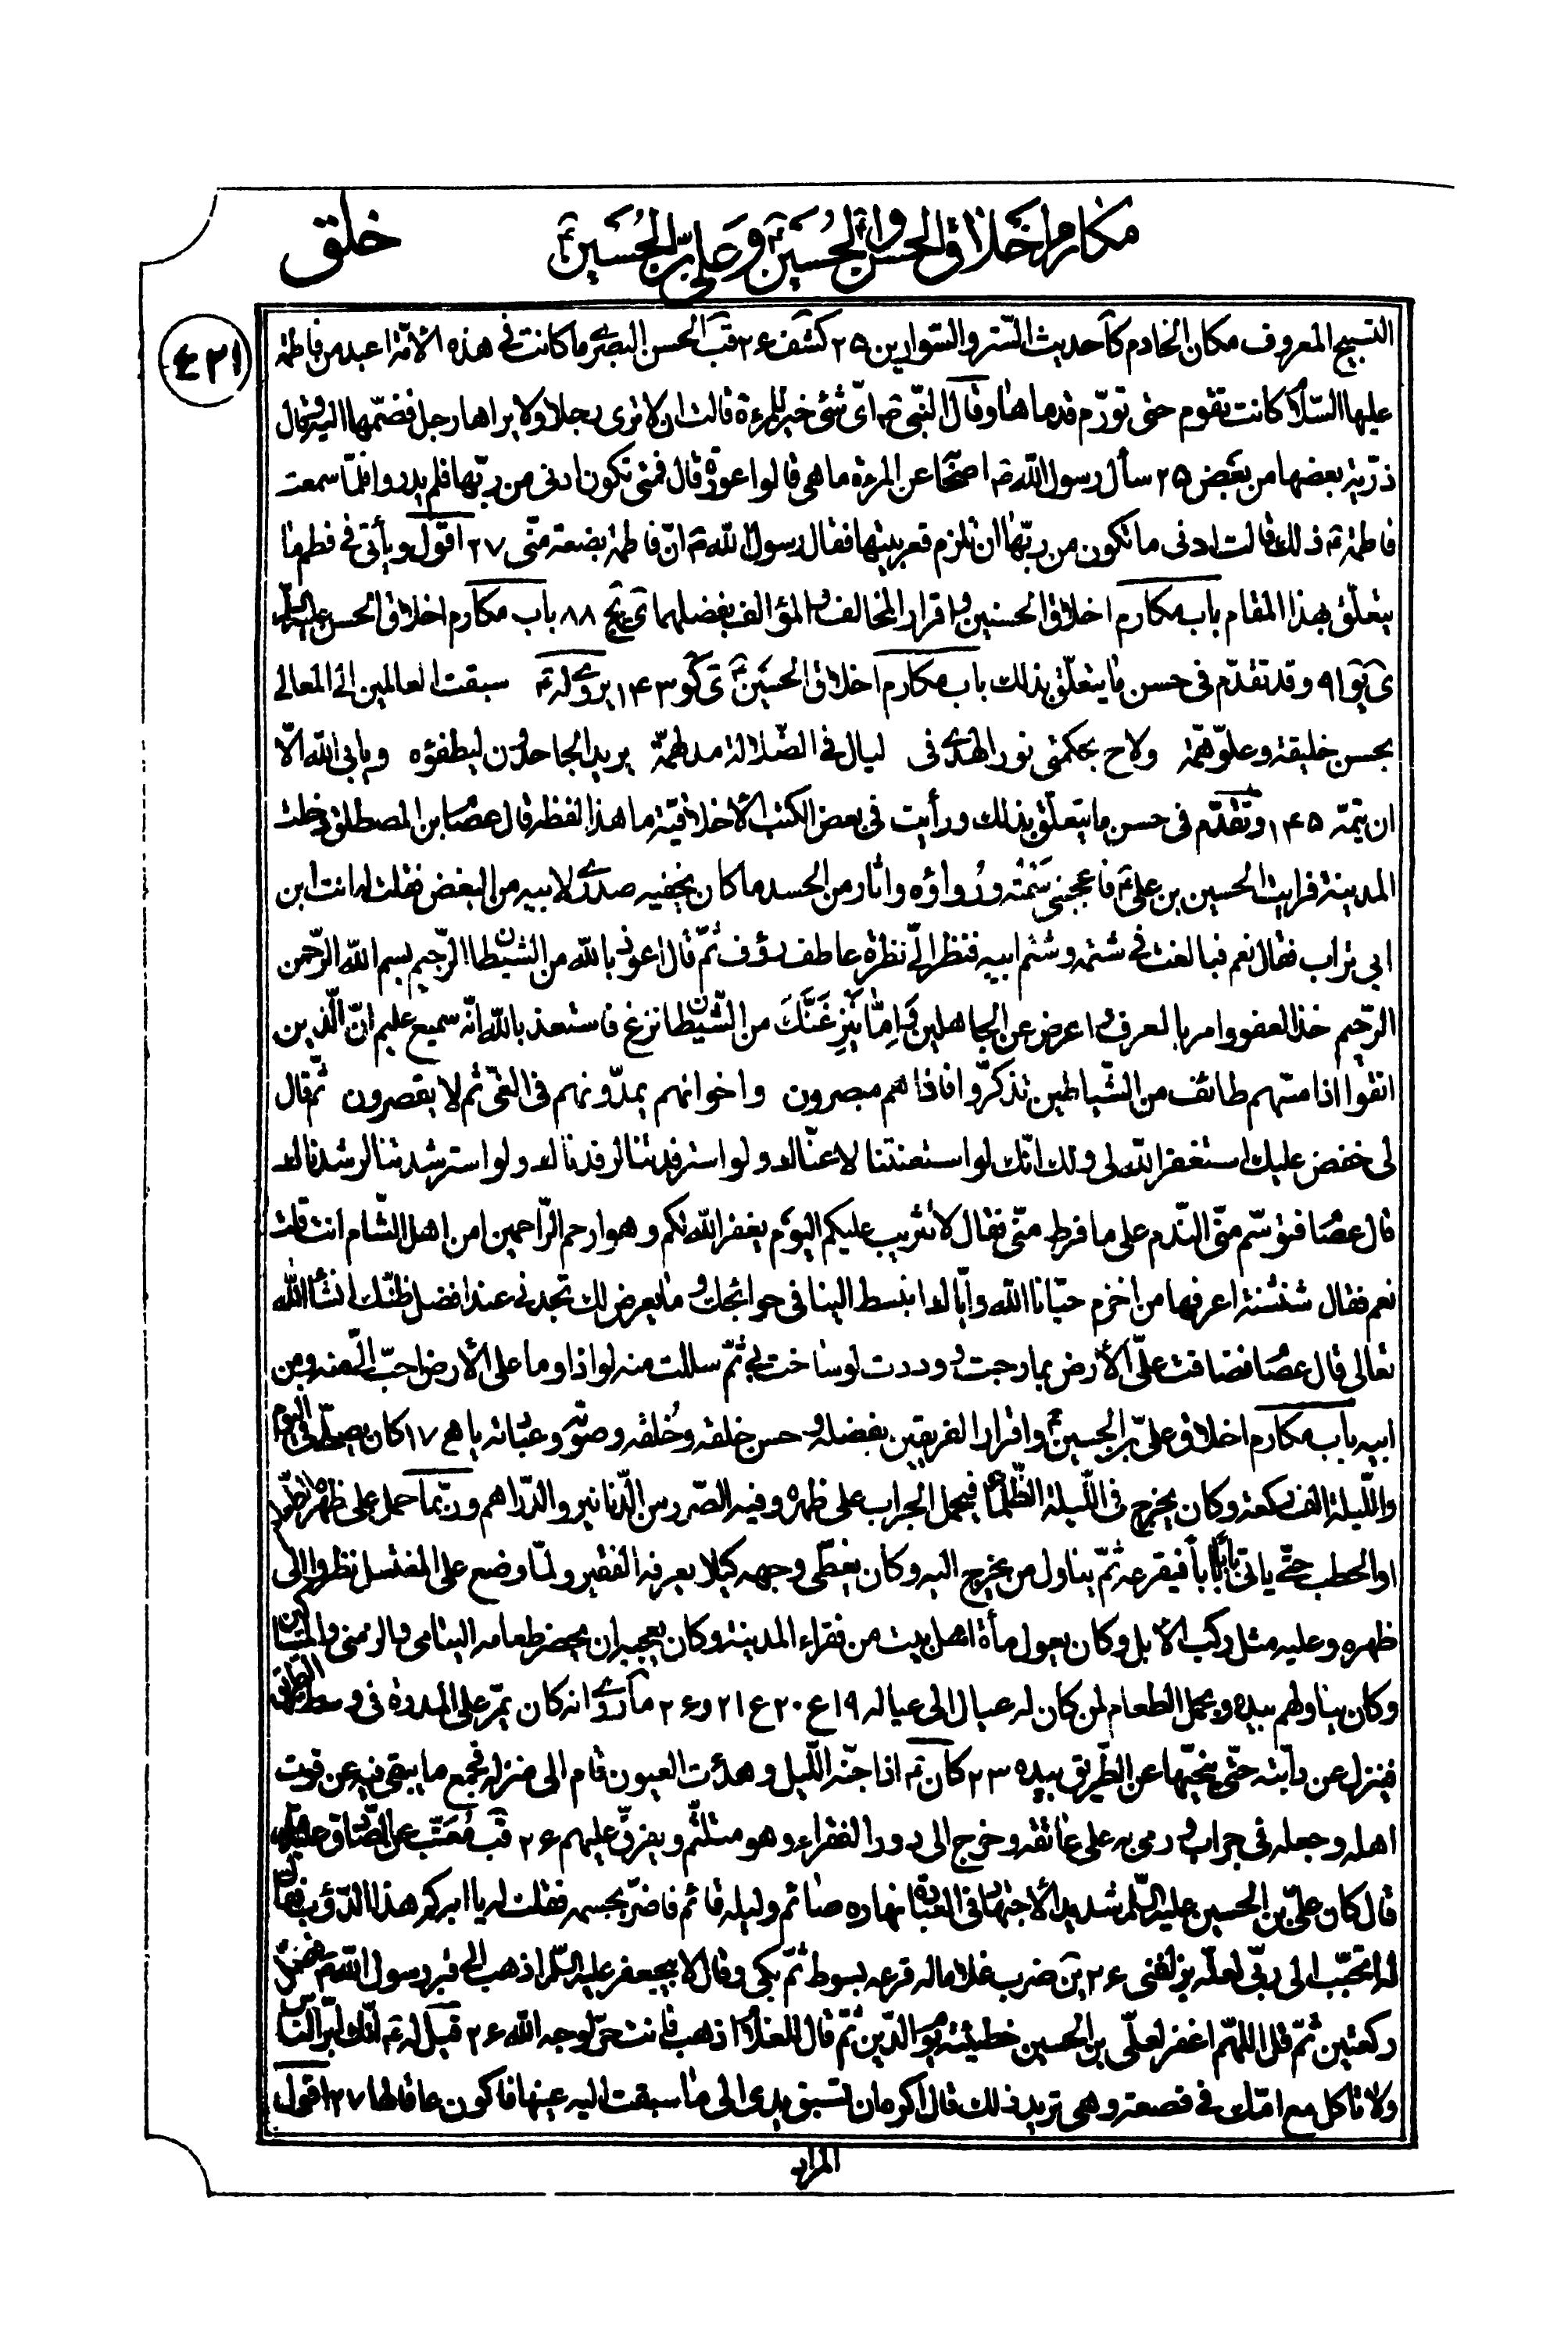 خلق
مكارم اخلاق الحسن والحسين وعلي بن الحسين
٤٢١
التسبيح المعروف مكان الخادم كا حديث الستر والسوارين ٢٥ كشف ٢٤ قب الحسن البصرى ما كانت فى هذه الأمة اعبد من فاطمة
عليها السلام كانت تقوم حتى تورم قدماها وقال النبى ص اى شئ خير للمرءة قالت ان لا ترى رجلا ولا يراها رجل فضمها اليه وقال
ذرية بعضها من بعض ٢٥ سأل رسول الله ص اصحابه عن المرءة ما هى قالوا عورة قال فمتى تكون ادنى من ربها فلم يدروا فلما سمعت
فاطمة ع ذلك قالت ادنى ما تكون من ربها ان تلزم قعر بيتها فقال رسول الله ص ان فاطمة بضعة منى ٢٧ اقول ويأتى فى فطم ما
يتعلق بهذا المقام باب مكارم اخلاق الحسنين واقرار المخالف والمؤالف بفضلهما ى يج ٨٨ باب مكارم اخلاق الحسن عليه السلام
ى يو ٩١ وقد تقدم فى حسن ما يتعلق بذلك باب مكارم اخلاق الحسين ع ى كو ١٤٣ يروى له ع سبقت العالمين الى المعالى
بحسن خليقة وعلو همة ولاح بحكمتى نور الهدى فى ليال فى الضلالة مدلهمة يريد الجاحدون ليطفؤه ويابى الله الا
ان يتمه ١٤٥ وتقدم فى حسن ما يتعلق بذلك ورأيت فى بعض الكتب الأخلاقية ما هذا لفظه قال عصام بن المصطلق دخلت
المدينة فرايت الحسين بن على ع فاعجبنى سمته ورواؤه واثار من الحسد ما كان يخفيه صدرى لابيه من البغض فقلت له انت ابن
ابى تراب فقال نعم فبالغت فى شتمه وشتم ابيه فنظر الى نظرة عاطف رؤف ثم قال اعوذ بالله من الشيطان الرجيم بسم الله الرحمن
الرحيم خذ العفو وامر بالعرف واعرض عن الجاهلين وَاِمّا يَنْزِغَنَّكَ من الشيطان نزغ فاستعذ بالله انه سميع عليم ان الذين
اتقوا اذا مسهم طائف من الشياطين تذكروا فاذا هم مبصرون واخوانهم يمدونهم فى الغى ثم لا يقصرون ثم قال
لى خفض عليك استغفر الله لى ولك انك لو استعنتنا لاعناك ولو استرفدتنا لرفدناك ولو استرشدتنا لرشدناك
قال عصام فتوسم منى الندم على ما فرط منى فقال لا تثريب عليكم اليوم يغفر الله لكم وهو ارحم الراحمين امن اهل الشام انت قلت
نعم فقال شنشنة اعرفها من اخزم حيانا الله واياك انبسط الينا فى حوائجك وما يعرض لك تجدنى عند افضل ظنك انشاء الله
تعالى قال عصام فضاقت على الأرض بما رحبت ووددت لو ساخت بى ثم سللت منه لواذا وما على الأرض احب الى منه ومن
ابيه باب مكارم اخلاق على بن الحسين واقرار الفريقين بفضله وحسن خلقه وخُلقه وصوته وعبادته يا هـ ١٧ كان يصلى فى اليوم
والليلة الف ركعة وكان يخرج فى الليلة الظلماء فيحمل الجراب على ظهره وفيه الصرر من الدنانير والدراهم وربما حمل على ظهره الطعام
او الحطب حتى ياتى بابا بابا فيقرعه ثم يناول من يخرج اليه وكان يغطى وجهه كيلا يعرفه الفقير ولما وضع على المغتسل نظروا الى
ظهره وعليه مثل ركب الابل وكان يعول مأة اهل بيت من فقراء المدينة وكان يعجبه ان يحضر طعامه اليتامى والزمنى والمساكين
وكان يناولهم بيده ويحمل الطعام لمن كان له عيال الى عياله ١٩ ع ٢٠ ع ٢١ و ٢٤ ما روى انه كان يمر على المدرة فى وسط الطريق
فينزل عن دابته حتى ينحيها عن الطريق بيده ٢٣ كان ع اذا جنه الليل وهدئت العيون قام الى منزله فجمع ما يبقى فيه عن قوت
اهله وجعله فى جراب ورمى به على عاتقه وخرج الى دور الفقراء وهو متلثم ويفرق عليهم ٢٤ قب مُعَتّب عن الصادق عليه السلام
قال كان على بن الحسين عليه السلام شديد الأجتهاد فى العبادة نهاره صائم وليله قائم فاضر بجسمه فقلت له يا ابه كم هذا الدؤوب فقال
له اتحبب الى ربى لعله يزلفنى ٢٤ ين ضرب غلاما له قرعه بسوط ثم بكى وقال لابيجعفر عليه السلم اذهب الى قبر رسول الله ص فصل
ركعتين ثم قل اللهم اغفر لعلى بن الحسين خطيئته يوم الدين ثم قال للغلام اذهب فانت حر لوجه الله ٢٤ قيل له ع انك ابر الناس
ولا تاكل مع امك فى قصعة وهى تريد ذلك قال اكره ان تسبق يدى الى ما سبقت اليه عينها فاكون عاقا لها ٢٧ اقول
المراد